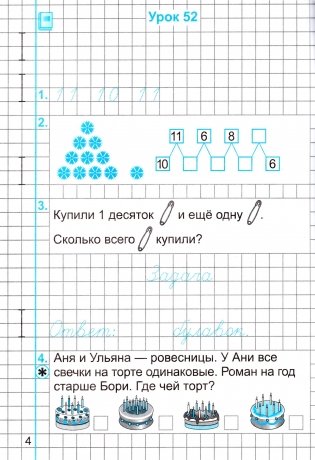 Урок 52
1. 11 10 11
2.
11 6 8
10 6
3.
Купили 1 десяток и ещё одну .
Сколько всего купили?
Задача
Ответ: булавок.
4. Аня и Ульяна — ровесницы. У Ани все
* свечки на торте одинаковые. Роман на год
старше Бори. Где чей торт?
4